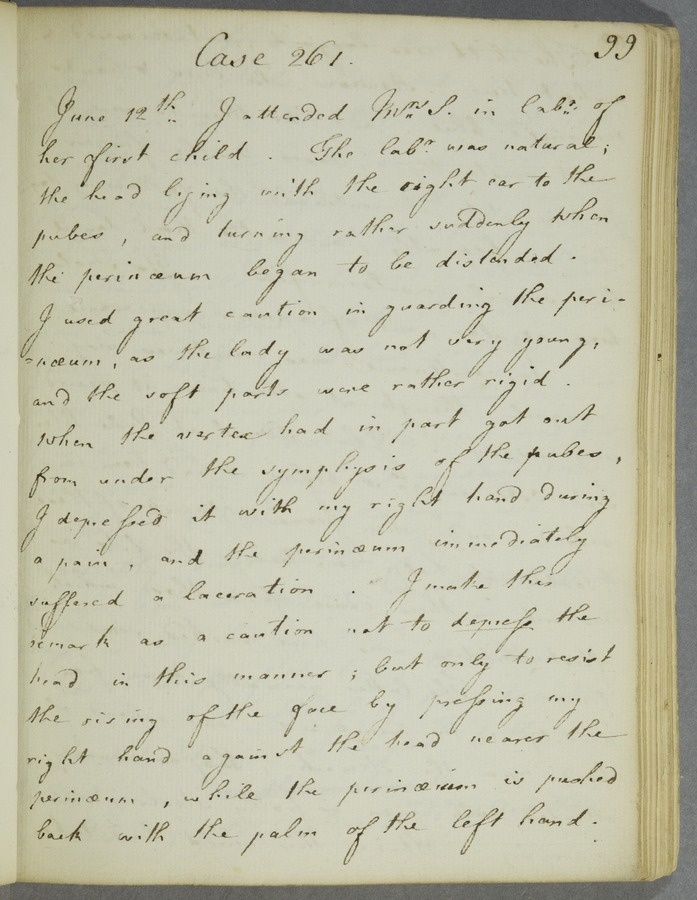 99
Case 261.
June 12th I attended Mrs S. in labr of
her first child. The labr was natural;
the head lying with the right ear to the
pubes, and turning rather suddenly when
the perinæum began to be distended.
I used great caution in guarding the peri-
-næum, as the lady was not very young,
and the soft parts were rather rigid.
When the vertex had in part got out
from under the symphysis of the pubes,
I depressed it with my right hand during
a pain, and the perinæum immediately
suffered a laceration. I make this
remark as a caution not to depress the
head in this manner; but only to resist
the rising of the face by pressing my
right hand against the head nearer the
perinæum, while the perinæum is pushed
back with the palm of the left hand.